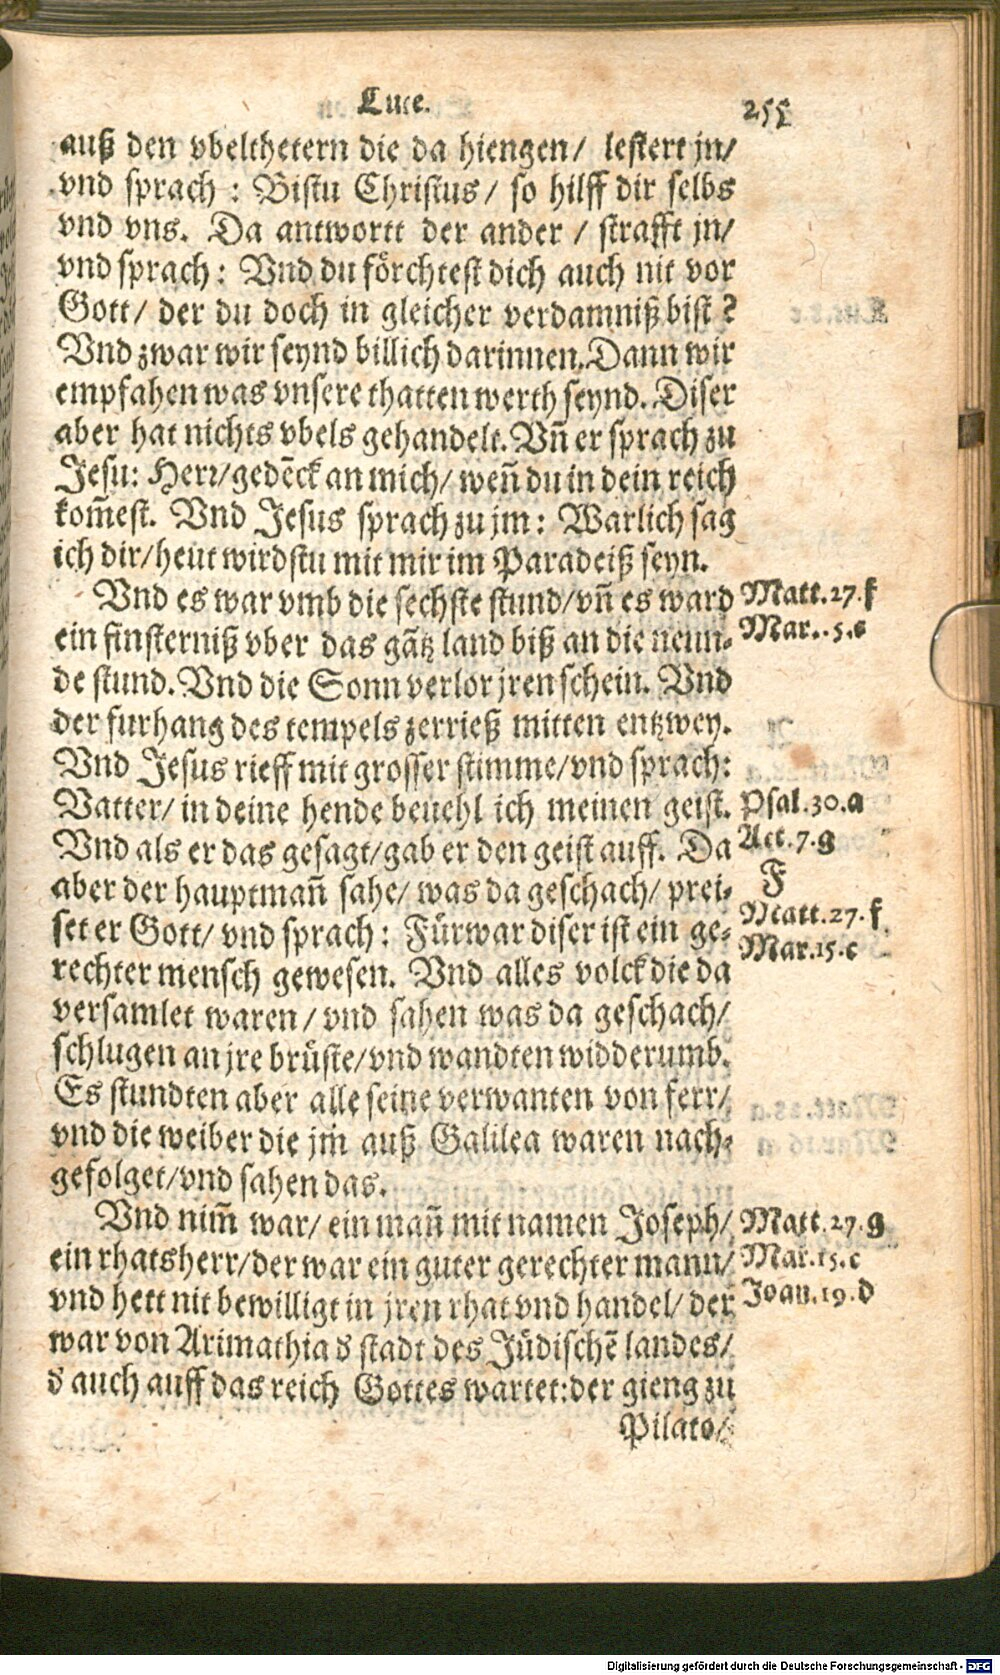 Luce.
255
auß den vbelthetern die da hiengen/ lestert jn/
vnd sprach : Bistu Christus/ so hilff dir selbs
vnd vns. Da antwortt der ander / strafft jn/
vnd sprach: Vnd du förchtest dich auch nit vor
Gott/ der du doch in gleicher verdamniß bist?
Vnd zwar wir seynd billich darinnen. Dann wir
empfahen was vnsere thatten werth seynd. Diser
aber hat nichts vbels gehandelt. Vn̄ er sprach zu
Jesu: Herr/ gedēck an mich/ wen̄ du in dein reich
kom̄est. Vnd Jesus sprach zu jm: Warlich sag
ich dir/ heut wirdstu mit mir im Paradeiß seyn.
Vnd es war vmb die sechste stund/ vn̄ es ward
ein finsterniß vber das gātz land biß an die neun-
de stund. Vnd die Sonn verlor jren schein. Vnd
der furhang des tempels zerrieß mitten entzwey.
Vnd Jesus rieff mit grosser stimme/ vnd sprach:
Vatter/ in deine hende beuehl ich meinen geist.
Vnd als er das gesagt/ gab er den geist auff. Da
aber der hauptman̄ sahe/ was da geschach/ prei-
set er Gott/ vnd sprach: Fürwar diser ist ein ge-
rechter mensch gewesen. Vnd alles volck die da
versamlet waren/ vnd sahen was da geschach/
schlugen an jre brüste/ vnd wandten widderumb.
Es stundten aber alle seine verwanten von ferr/
vnd die weiber die jm auß Galilea waren nach-
gefolget/ vnd sahen das.
Vnd nim̄ war/ ein man̄ mit namen Joseph/
ein rhatsherr/ der war ein guter gerechter mann/
vnd hett nit bewilligt in jren rhat vnd handel/ der
war von Arimathia d stadt des Jüdischē landes/
d auch auff das reich Gottes wartet: der gieng zu
Pilato/
Matt.27.f
Mar..5.c
Psal.30.a
Act.7.g
F
Matt.27.f
Mar.15.c
Matt.27.g
Mar.15.c
Joan.19.d
Digitalisierung gefördert durch die Deutsche Forschungsgemeinschaft - DFG